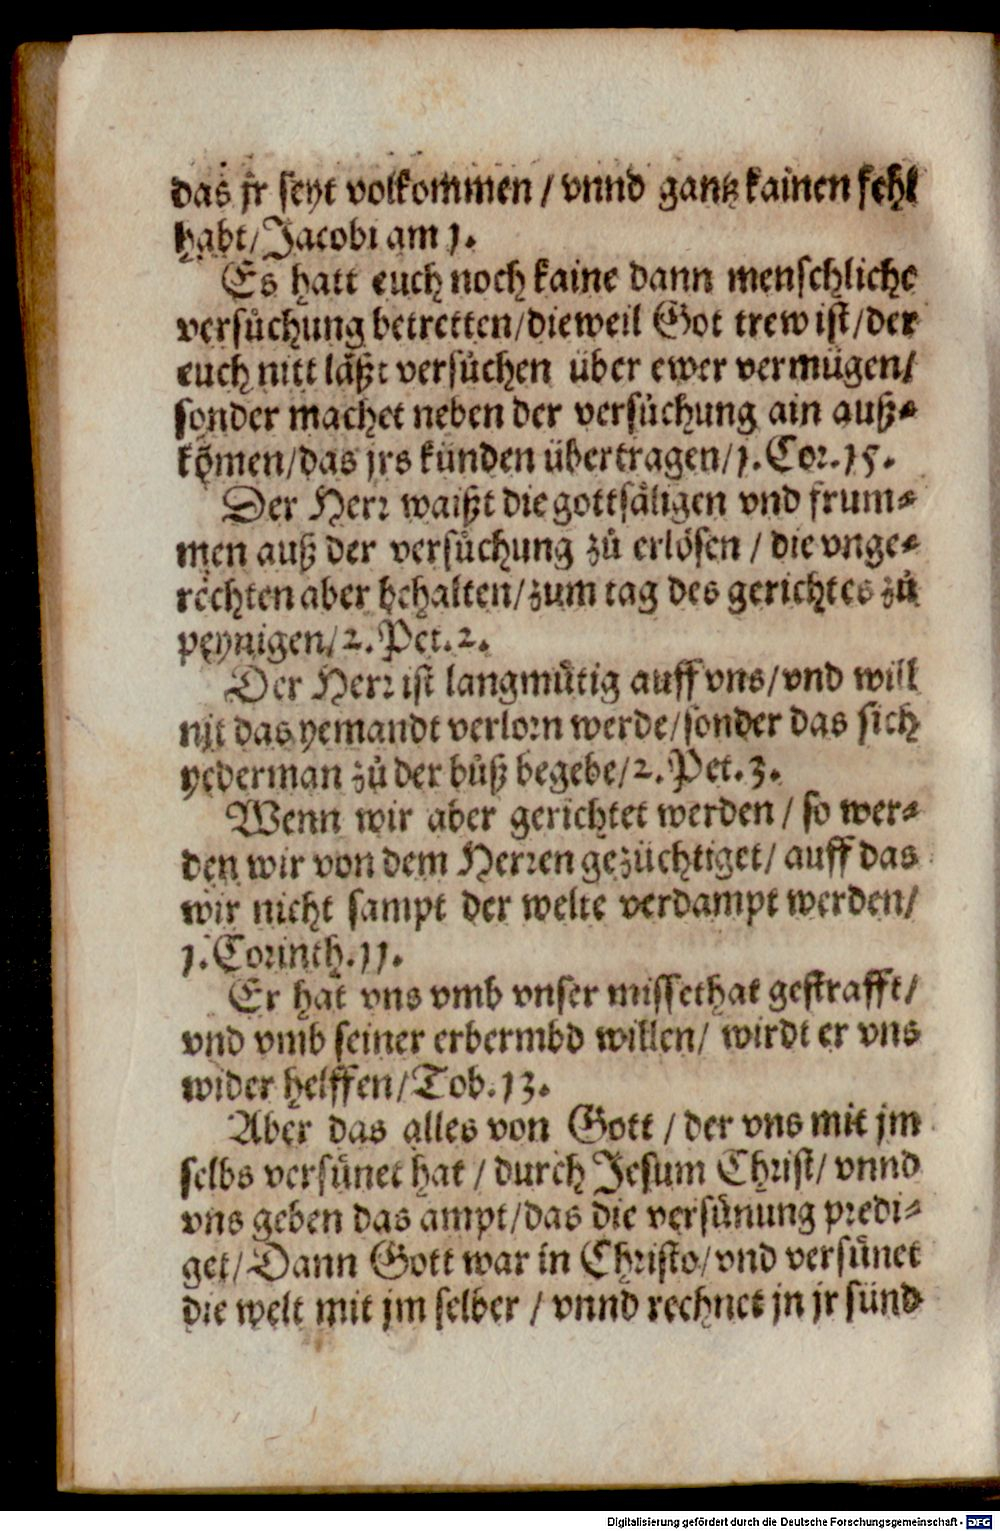 das jr seyt volkommen / vnnd gantz kainen fehl
habt / Jacobi am 1.
Es hatt euch noch kaine dann menschliche
versůchung betretten / dieweil Got trew ist / der
euch nitt läßt versůchen über ewer vermügen /
sonder machet neben der versůchung ain auß⸗
kõmen / das jrs künden übertragen / 1. Cor. 15.
Der Herr waißt die gottsäligen vnd frum⸗
men auß der versůchung zů erlösen / die vnge⸗
rechten aber behalten / zum tag des gerichtes zů
peynigen / 2. Pet. 2.
Der Herr ist langmůtig auff vns / vnd will
nit das yemandt verlorn werde / sonder das sich
yederman zů der bůß begebe / 2. Pet. 3.
Wenn wir aber gerichtet werden / so wer⸗
den wir von dem Herren gezüchtiget / auff das
wir nicht sampt der welte verdampt werden /
1. Corinth. 11.
Er hat vns vmb vnser missethat gestrafft /
vnd vmb seiner erbermbd willen / wirdt er vns
wider helffen / Tob. 13.
Aber das alles von Gott / der vns mit jm
selbs versünet hat / durch Jesum Christ / vnnd
vns geben das ampt / das die versünung predi⸗
get / Dann Gott war in Christo / vnd versünet
die welt mit jm selber / vnnd rechnet jn jr sünd
Digitalisierung gefördert durch die Deutsche Forschungsgemeinschaft - DFG